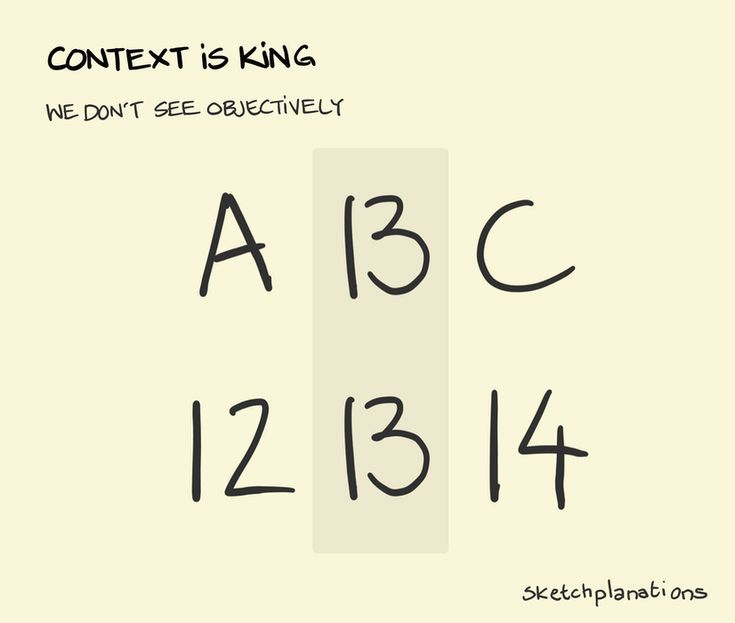 CONTEXT iS KiNG
WE DON'T SEE OBJECTiVELY
A 13 C
12 13 14
sketchplanations